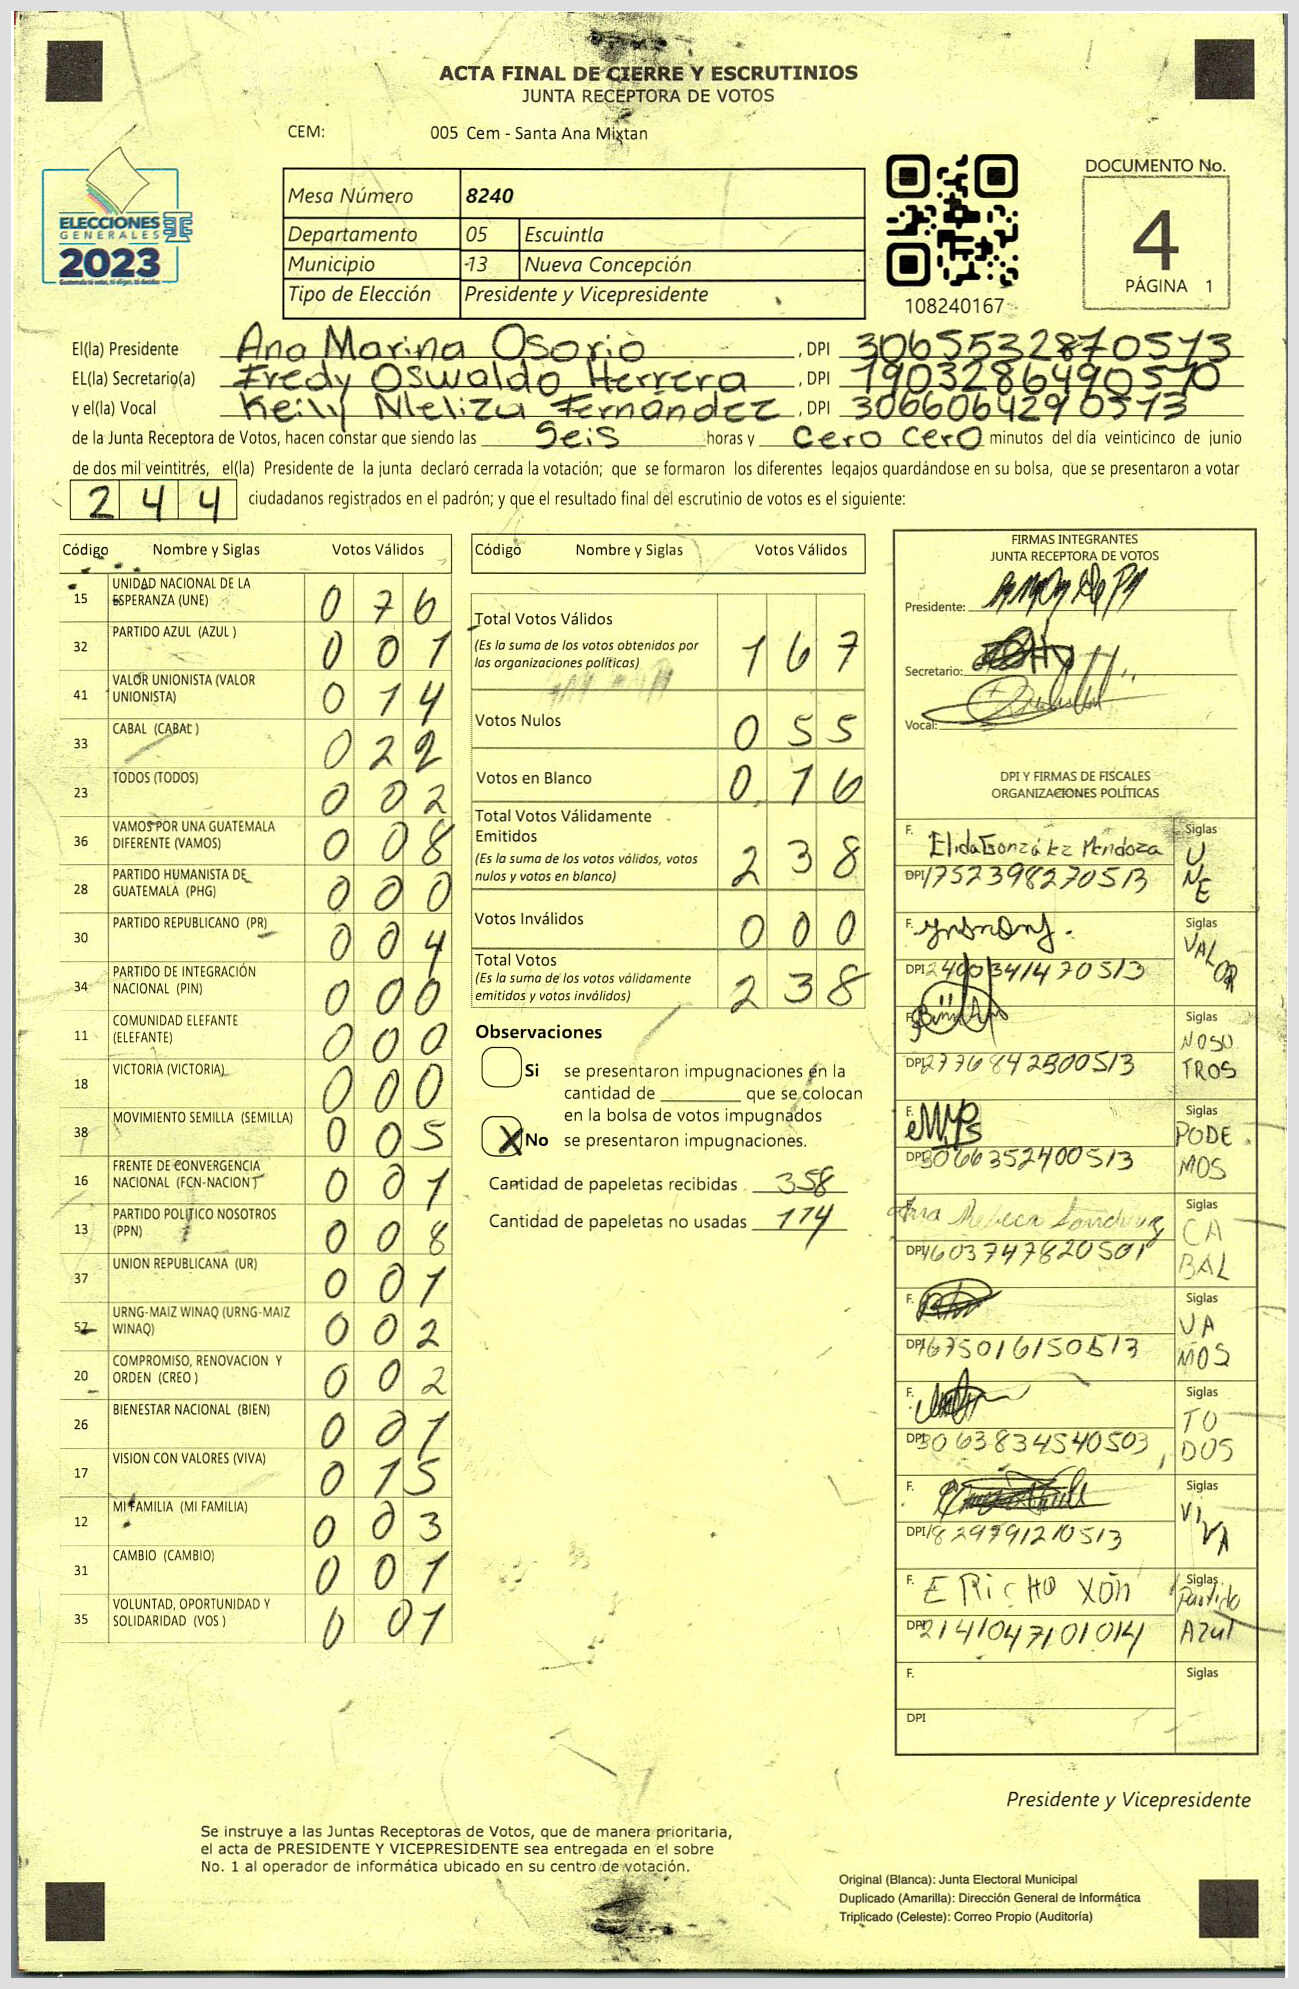 ACTA FINAL DE CIERRE Y ESCRUTINIOS
JUNTA RECEPTORA DE VOTOS
CEM: 005 Cem - Santa Ana Mixtan
ELECCIONES
GENERALES
2023
Mesa Número 8240
Departamento 05 Escuintla
Municipio -13 Nueva Concepción
Tipo de Elección Presidente y Vicepresidente
108240167
DOCUMENTO No.
4
PÁGINA 1
El(la) Presidente Ana Marina Osorio, DPI 3065532870513
EL(la) Secretario(a) Fredy Oswaldo Herrera, DPI 1903286490510
y el(la) Vocal Keily Meliza Fernández, DPI 3066064290513
de la Junta Receptora de Votos, hacen constar que siendo las Seis horas y Cero Cero minutos del día veinticinco de junio
de dos mil veintitrés, el(la) Presidente de la junta declaró cerrada la votación; que se formaron los diferentes legajos guardándose en su bolsa, que se presentaron a votar
244 ciudadanos registrados en el padrón; y que el resultado final del escrutinio de votos es el siguiente:
Código Nombre y Siglas Votos Válidos
15 UNIDAD NACIONAL DE LA ESPERANZA (UNE) 076
32 PARTIDO AZUL (AZUL ) 001
41 VALOR UNIONISTA (VALOR UNIONISTA) 014
33 CABAL (CABAL ) 022
23 TODOS (TODOS) 002
36 VAMOS POR UNA GUATEMALA DIFERENTE (VAMOS) 008
28 PARTIDO HUMANISTA DE GUATEMALA (PHG) 000
30 PARTIDO REPUBLICANO (PR) 004
34 PARTIDO DE INTEGRACIÓN NACIONAL (PIN) 000
11 COMUNIDAD ELEFANTE (ELEFANTE) 000
18 VICTORIA (VICTORIA) 000
38 MOVIMIENTO SEMILLA (SEMILLA) 005
16 FRENTE DE CONVERGENCIA NACIONAL (FCN-NACION) 001
13 PARTIDO POLITICO NOSOTROS (PPN) 008
37 UNION REPUBLICANA (UR) 001
57 URNG-MAIZ WINAQ (URNG-MAIZ WINAQ) 002
20 COMPROMISO, RENOVACION Y ORDEN (CREO ) 002
26 BIENESTAR NACIONAL (BIEN) 001
17 VISION CON VALORES (VIVA) 015
12 MI FAMILIA (MI FAMILIA) 003
31 CAMBIO (CAMBIO) 001
35 VOLUNTAD, OPORTUNIDAD Y SOLIDARIDAD (VOS ) 001
Código Nombre y Siglas Votos Válidos
Total Votos Válidos 167
(Es la suma de los votos obtenidos por
las organizaciones políticas)
Votos Nulos 055
Votos en Blanco 016
Total Votos Válidamente
Emitidos 238
(Es la suma de los votos válidos, votos
nulos y votos en blanco)
Votos Inválidos 000
Total Votos 238
(Es la suma de los votos válidamente
emitidos y votos inválidos)
Observaciones
Si se presentaron impugnaciones en la
cantidad de ________ que se colocan
en la bolsa de votos impugnados
X No se presentaron impugnaciones.
Cantidad de papeletas recibidas 358
Cantidad de papeletas no usadas 114
FIRMAS INTEGRANTES
JUNTA RECEPTORA DE VOTOS
Presidente:
Secretario:
Vocal:
DPI Y FIRMAS DE FISCALES
ORGANIZACIONES POLÍTICAS
F. Elida González Mendoza Siglas UNE
DPI 1752398270513
F. Siglas VALOR
DPI 2400341470513
F. Siglas NOSOTROS
DPI 2776842500513
F. Siglas PODEMOS
DPI 3066352400513
F. Ana Rebeca Siglas CABAL
DPI 1603747820501
F. Siglas VAMOS
DPI 1675016150513
F. Siglas TODOS
DPI 3063834540503
F. Siglas VIVA
DPI 1829791210513
F. Ericho Xon Siglas Partido Azul
DPI 2141047101014
F. Siglas
DPI
Presidente y Vicepresidente
Se instruye a las Juntas Receptoras de Votos, que de manera prioritaria,
el acta de PRESIDENTE Y VICEPRESIDENTE sea entregada en el sobre
No. 1 al operador de informática ubicado en su centro de votación.
Original (Blanca): Junta Electoral Municipal
Duplicado (Amarilla): Dirección General de Informática
Triplicado (Celeste): Correo Propio (Auditoría)